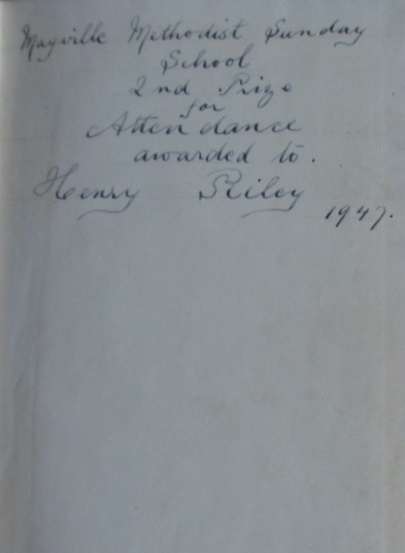 Mayville Methodist Sunday
School
2nd Prize
for
Attendance
awarded to.
Henry Riley
1947.